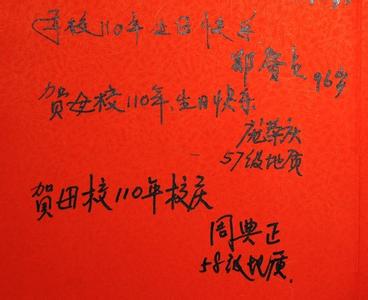 母校110年生日快乐
96岁
贺母校110年、生日快乐
荣庆
57级地质
贺母校110年校庆
周典正
58级地质